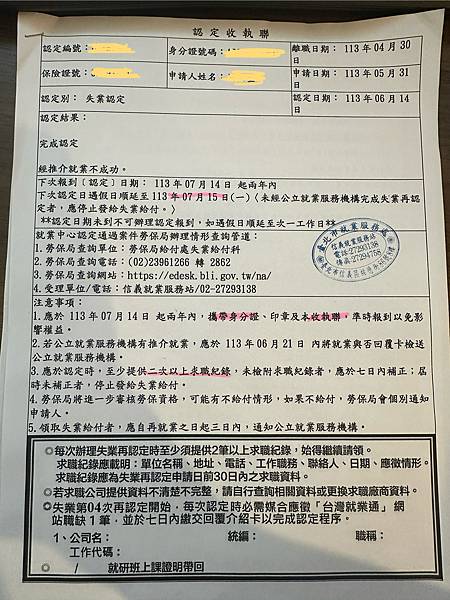 認定收執聯
認定編號：
身分證號碼：
離職日期： 113 年 04 月 30 日
保險證號：
申請人姓名：
申請日期： 113 年 05 月 31 日
認定別： 失業認定
認定日期： 113 年 06 月 14 日
認定結果：
完成認定
經推介就業不成功。
下次報到〔認定〕日期： 113 年 07 月 14 日 起兩年內
下次認定日遇假日順延至 113 年 07 月 15 日(一)〈未經公立就業服務機構完成失業再認
定者，應停止發給失業給付。〉
**認定日期未到不可辦理認定報到，如遇假日順延至次一工作日**
就業中心認定通過案件勞保局辦理情形查詢管道：
1. 勞保局查詢單位：勞保局給付處失業給付科
2. 勞保局查詢電話：(02)23961266 轉 2862
3. 勞保局查詢網站：https://edesk.bli.gov.tw/na/
4. 受理單位/電話：信義就業服務站/02-27293138
臺北市就業服務處
信義就業服務站
電話:27293138
傳真:27294758
注意事項：
1. 應於 113 年 07 月 14 日 起兩年內，攜帶身分證、印章及本收執聯，準時報到以免影
響權益。
2. 若公立就業服務機構有推介就業，應於 113 年 06 月 21 日 內將就業與否回覆卡檢送
公立就業服務機構。
3. 應於認定時，至少提供二次以上求職紀錄，未檢附求職紀錄者，應於七日內補正；屆
時未補正者，停止發給失業給付。
4. 勞保局將進一步審核勞保資格，可能有不給付情形，如果不給付，勞保局會個別通知
申請人。
5. 領取失業給付者，應自再就業之日起三日內，通知公立就業服務機構。
◎每次辦理失業再認定時至少須提供2筆以上求職紀錄，始得繼續請領。
求職紀錄應載明：單位名稱、地址、電話、工作職務、聯絡人、日期、應徵情形。
求職紀錄應為失業再認定申請日前30日內之求職資料。
◎若求職公司提供資料不清楚不完整，請自行查詢相關資料或更換求職廠商資料。
◎失業第04次再認定開始，每次認定時必需媒合應徵「台灣就業通」網
站職缺 1 筆，並於七日內繳交回覆介紹卡以完成認定程序。
1、公司名： 統編： 職稱：
工作代碼：
◎ / 就研班上課證明帶回